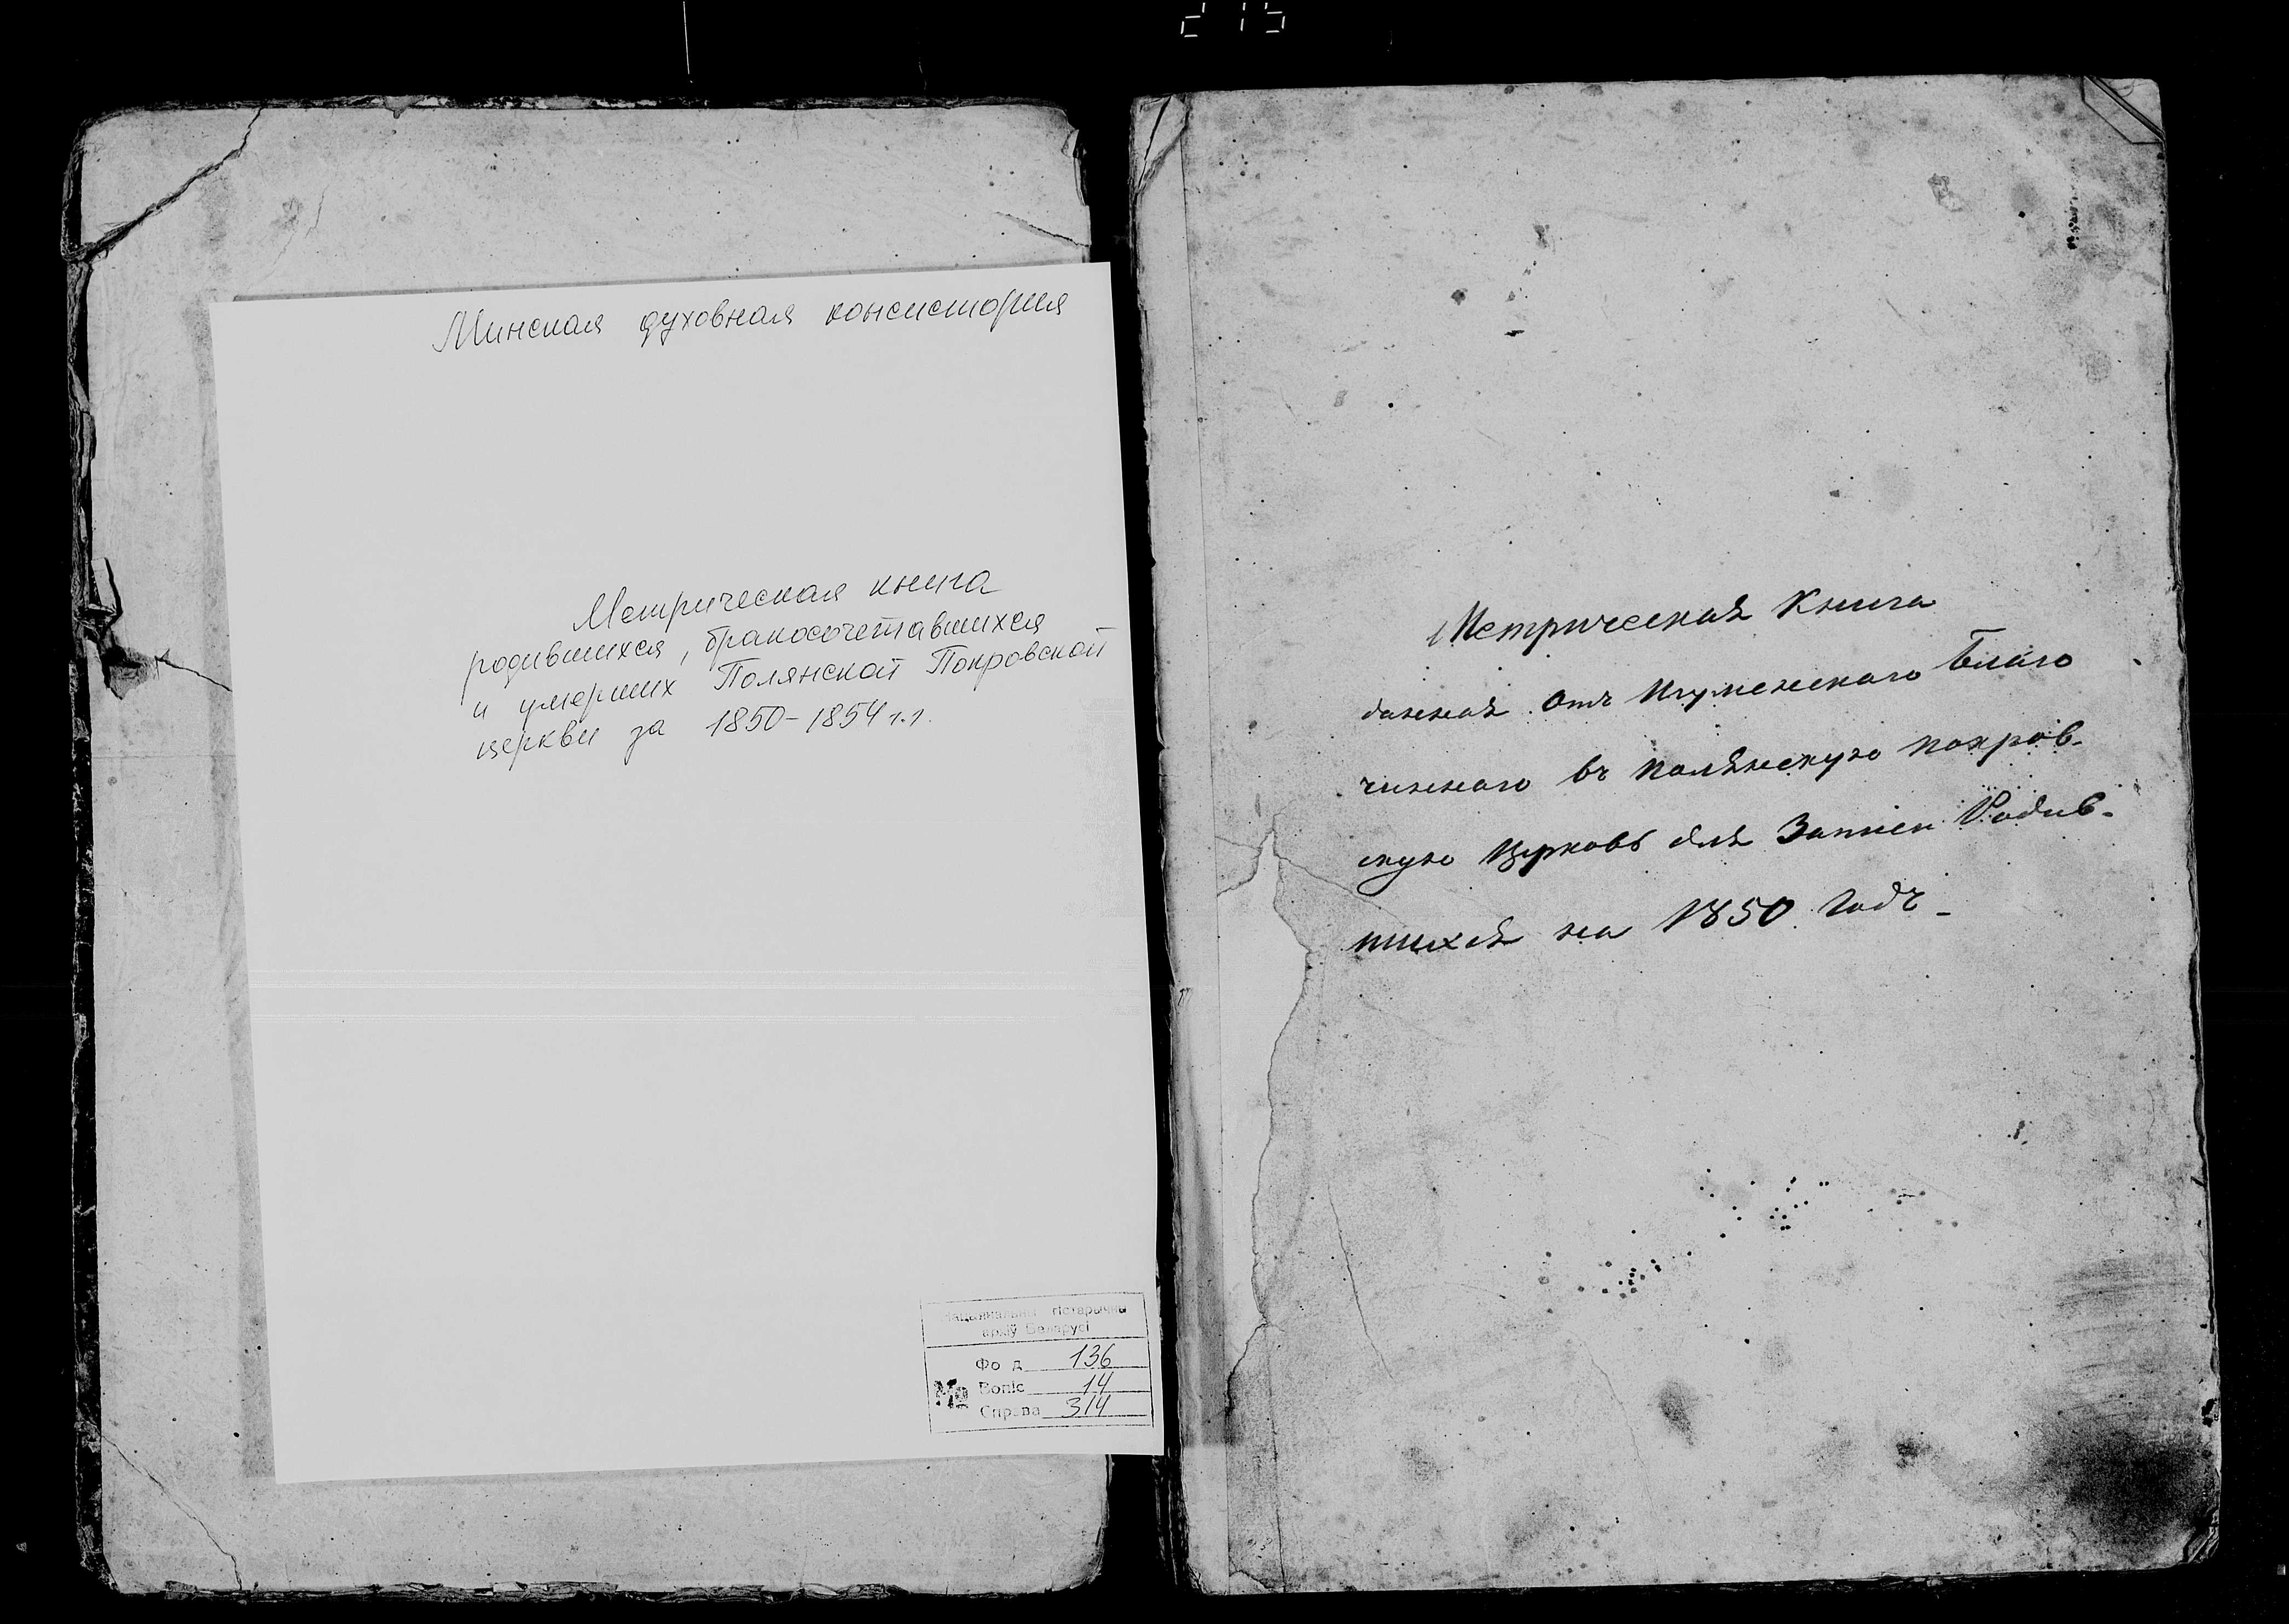 215
Минская духовная консистория
Метрическая книга
родившихся, бракосочетавшихся
и умерших Полянской Покровской
церкви за 1850-1854 г.г.
Нацыянальны гістарычны
архіў Беларусі
Фо д 136
№ Вопіс 14
Справа 314
Метрическая Книга
данная отъ Игуменскаго Благо
чиннаго въ Полянскую покров-
скую Церковь для Записи Родив-
шихся на 1850 Годъ-